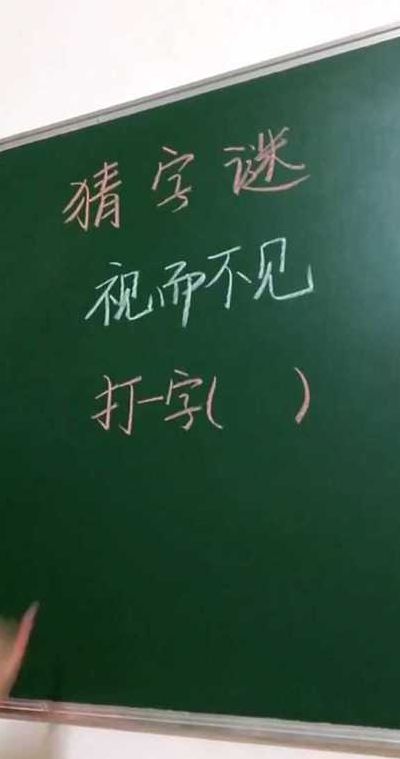 猜字谜
视而不见
打一字( )